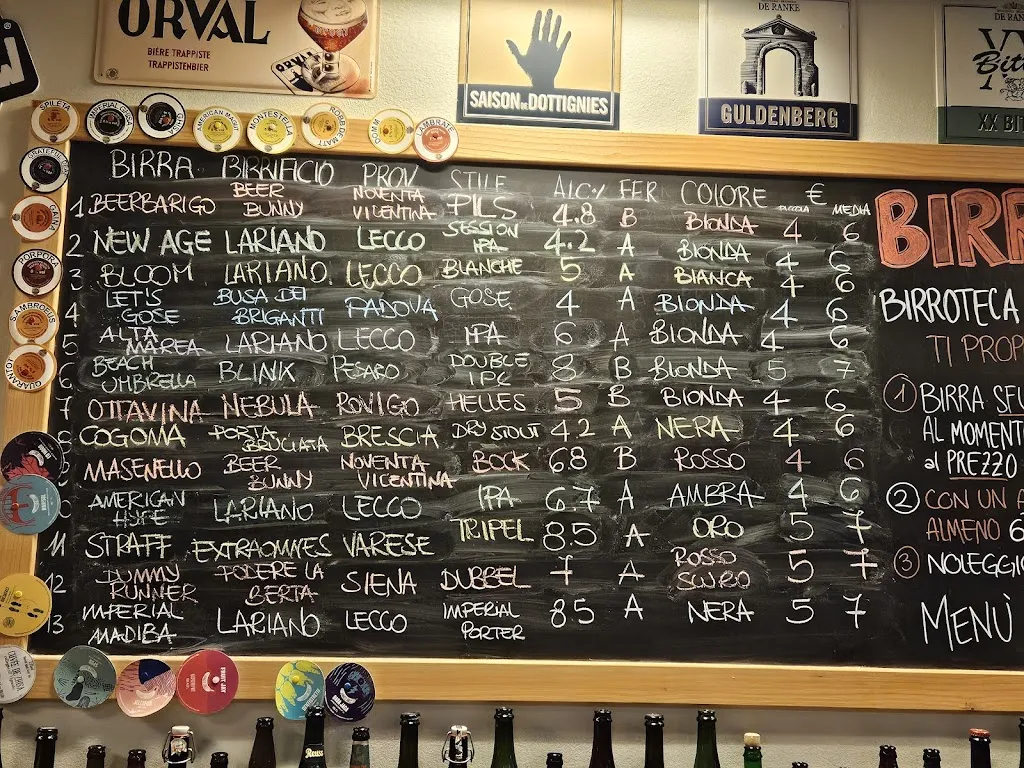 ORVAL
BIÈRE TRAPPISTE
TRAPPISTENBIER
ORVAL
SAISON DE DOTTIGNIES
DE RANKE
GULDENBERG
DE RAN
XX BIT
SPILETA
IMPERIAL GHISA
GHISA
AMERICAN MAGUT
MONTESTELLA
ROBB DE MATT
DOMM
LAMBRATE
GAINA
PORPORA
S.AMBROEUS
QUARANTOT
BIRRA BIRRIFICIO PROV STILE ALC% FER COLORE € PICCOLA MEDIA
1 BEERBARIGO BEER BUNNY NOVENTA VICENTINA PILS 4.8 B BIONDA 4 6
2 NEW AGE LARIANO LECCO SESSION IPA 4.2 A BIONDA 4 6
3 BLOOM LARIANO LECCO BLANCHE 5 A BIANCA 4 6
4 LET'S GOSE BUSA DEI BRIGANTI PADOVA GOSE 4 A BIONDA 4 6
5 ALTA MAREA LARIANO LECCO IPA 6 A BIONDA 4 6
6 BEACH UMBRELLA BLINK PESARO DOUBLE IPL 8 B BIONDA 5 7
7 OTTAVINA NEBULA ROVIGO HELLES 5 B BIONDA 4 6
8 COGOMA PORTA BRUCIATA BRESCIA DRY STOUT 4.2 A NERA 4 6
MASENELLO BEER BUNNY NOVENTA VICENTINA BOCK 6.8 B ROSSO 4 6
AMERICAN HOPE LARIANO LECCO IPA 6.7 A AMBRA 4 6
11 STRAFF EXTRAOMNES VARESE TRIPEL 8.5 A ORO 5 7
12 DUMMY RUNNER PODERE LA BERTA SIENA DUBBEL 7 A ROSSO SCURO 5 7
13 IMPERIAL MADIBA LARIANO LECCO IMPERIAL PORTER 8.5 A NERA 5 7
BIRR
BIRROTECA
TI PROP
1 BIRRA SFU
AL MOMENT
al PREZZO
2 CON UN A
ALMENO 6
3 NOLEGGIO
MENÙ